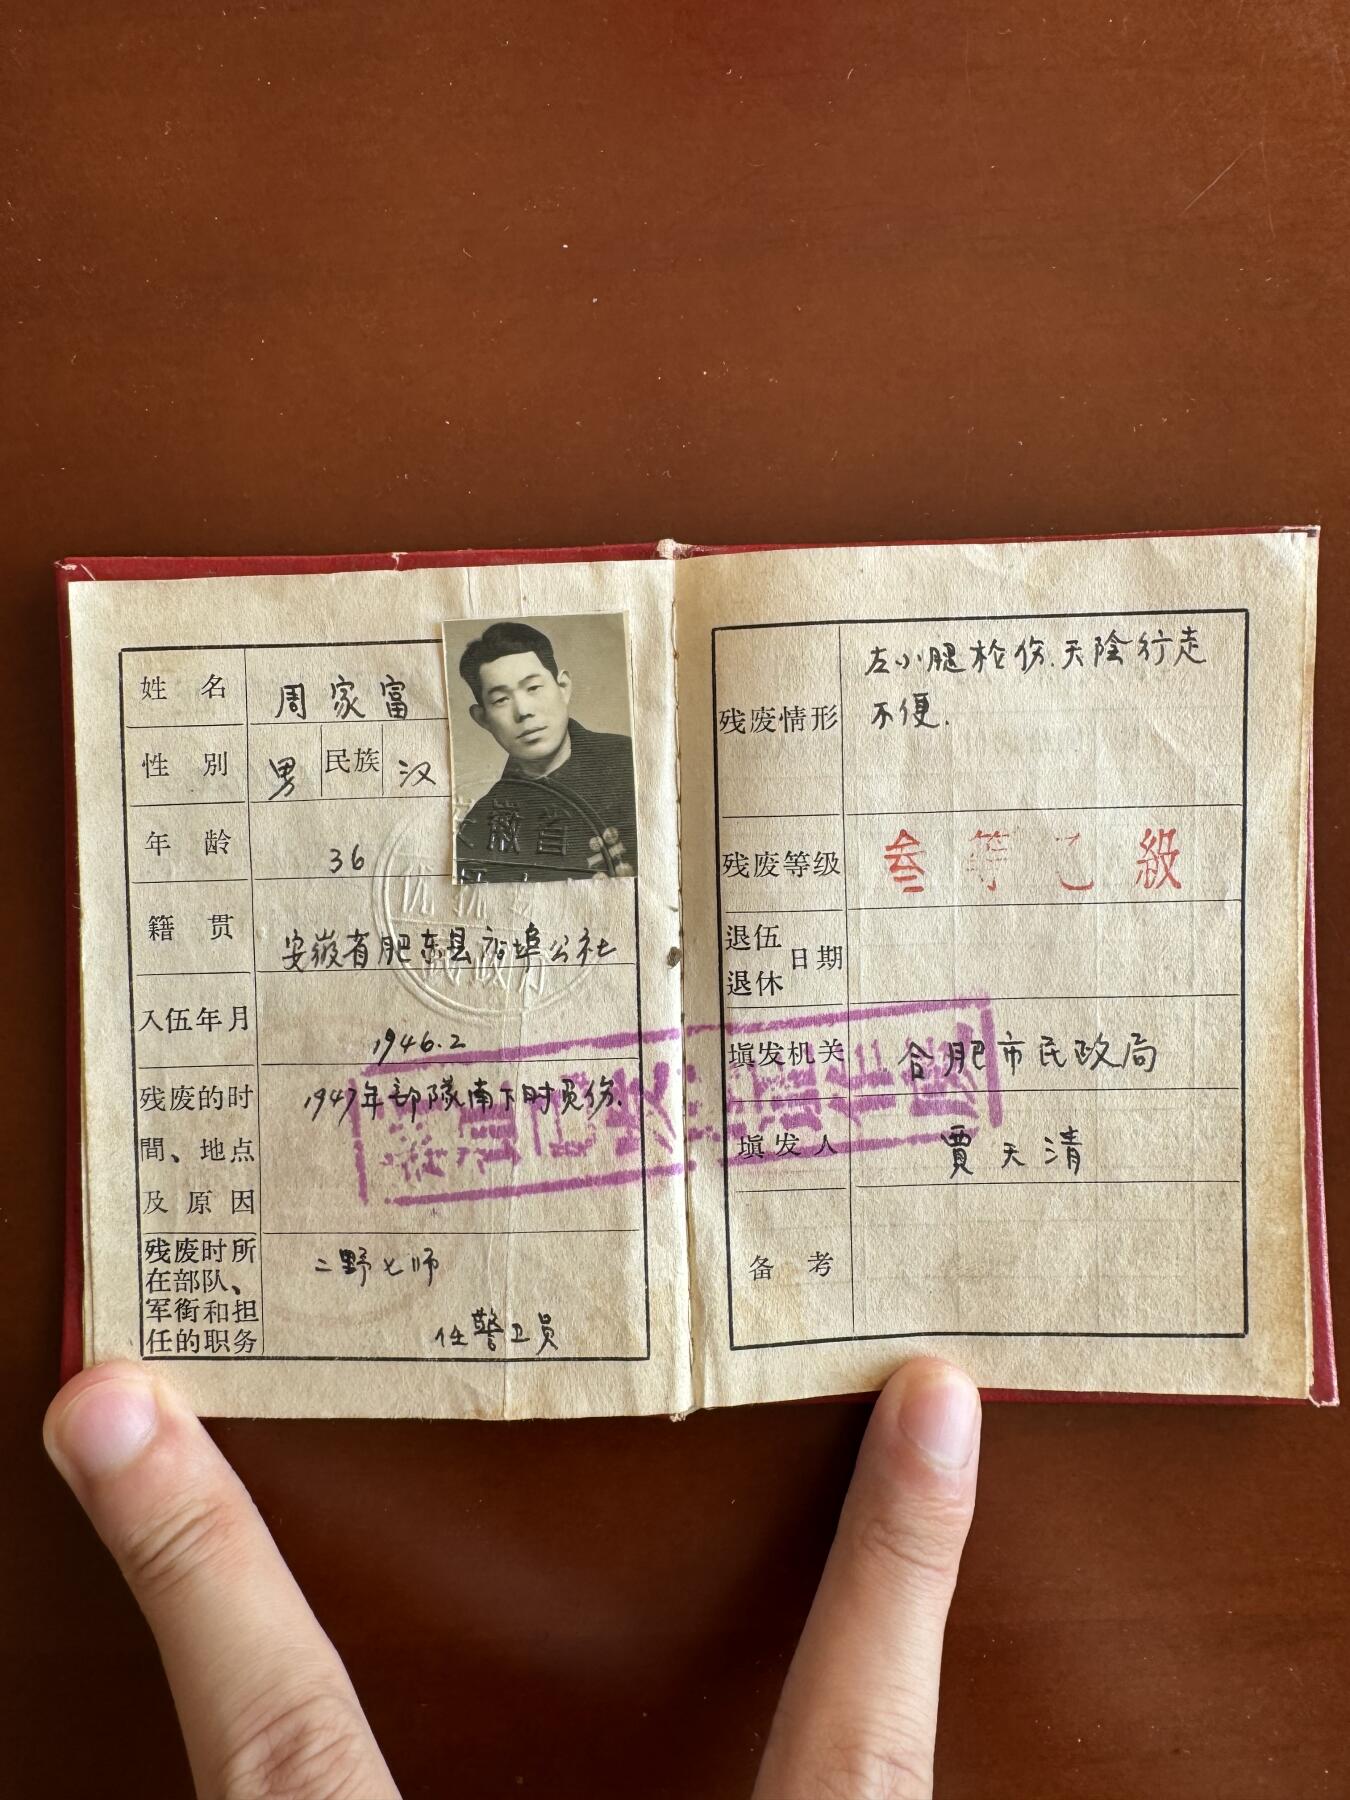 姓名 周家富
性别 男 民族 汉
年龄 36
籍贯 安徽省肥东县店埠公社
入伍年月 1946.2
残废的时
間、地点
及原因
1947年部隊南下时负伤.
残废时所
在部队、
军衔和担
任的职务
二野七师
任警卫员
安徽省
残废情形
左小腿枪伤.天陰行走
不便.
残废等级 叁等乙級
退伍
退休
日期
填发机关 合肥市民政局
填发人 賈天清
备考